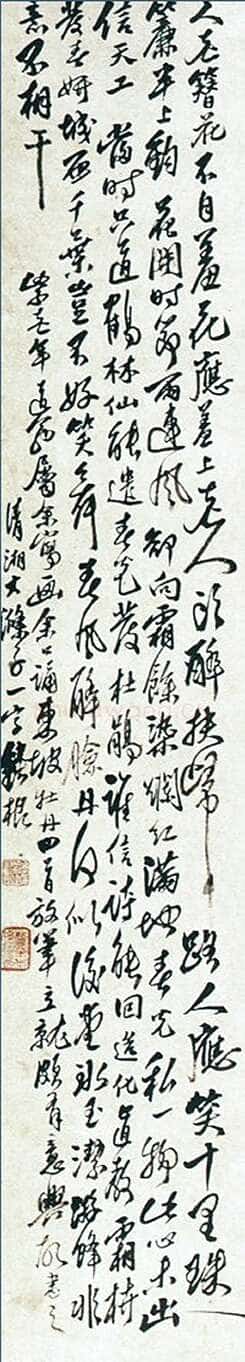 人老簪花不自羞花應羞上老人頭醉扶歸路人應笑十里珠
簾半上鉤 花開時節雨連風 却向霜餘染爛紅滿地春光私一物此心未出
信天工 當時只道鶴林仙能遣春光發杜鵑誰信詩能回造化直教霜枿
發春妍 城西千葉豈不好笑舞春風醉臉丹何似後堂冰玉潔游蜂非
意不相干
柴老年道翁屬余寫畫余誦東坡牡丹四首放筆立就頗有意興故書之
清湘大滌子一字鈍根